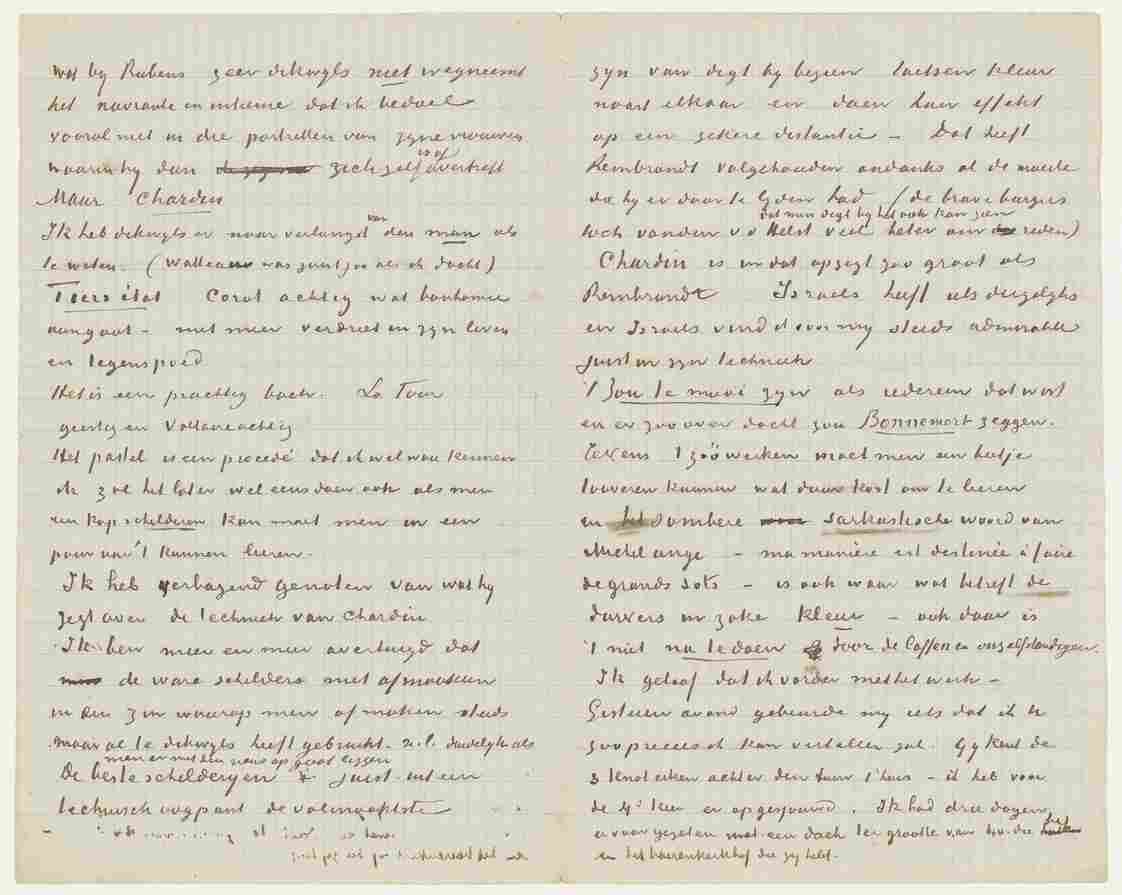 wij by Rubens zeer dikwyls niet wegneemt
het navrante en intieme dat ik bedoel
vooral niet in die portretten van zyne vrouwen
waarin hy dan zichzelf is of overtreft
Maar Chardin
Ik heb dikwyls er naar verlangd van den man als
te weten. (Watteau was juist zoo als ik dacht)
Tiers état Corot achtig wat bonhomie
aangaat – met meer verdriet in zyn leven
en tegenspoed
Het is een prachtig boek. La Tour
geestig en Voltaireachtig
Het pastel is een procedé dat ik wel wou kennen
ik zal het later wel eens doen ook als men
een kop schilderen kan moet men in een
paar uur 't kunnen leeren.
Ik heb verbazend genoten van wat hy
zegt over de techniek van Chardin
Ik ben meer en meer overtuigd dat
de ware schilders niet afmaakten
in den zin waarop men afmaken steeds
maar al te dikwyls heeft gebruikt. n.l. duidelyk als
men er met den neus op gaat liggen
De beste schilderyen & juist uit een
technisch oogpunt de volmaaktste
zyn van digt by bezien toetsen kleur
naast elkaar en doen hun effekt
op een zekere distantie – Dat heeft
Rembrandt volgehouden ondanks al de moeite
die hy er door te lyden had (de brave burgers
dat men digt by het ook kan zien
toch vanden v.d Helst veel beter om reden)
Chardin is in dat opzigt zoo groot als
Rembrandt Israels heeft als dergelyks
en Israels vind ik voor my steeds admirable
juist in zyn techniek
't Zou te mooi zyn als iedereen dat wist
en er zoo over dacht zou Bonnemort zeggen.
Tevens 't zóó werken moet men een beetje
tooveren kunnen wat duur kost om te leeren
en het sombere sarkastische woord van
Michel ange – ma manière est destinée à faire
de grands sots – is ook waar wat betreft de
durvers in zake kleur – ook daar is
't niet na te doen door de laffen en onzelfstandigen.
Ik geloof dat ik vorder met het werk –
Gisteren avond gebeurde my iets dat ik U
zoo precies ik kan vertellen zal. Gy kent de
3 knot eiken achter den tuin t'huis – ik heb voor
de 4e keer er op gezwoegd. Ik had drie dagen
er voor gezeten met een doek ter grootte van die
en het boerenkerkhof die gy hebt.